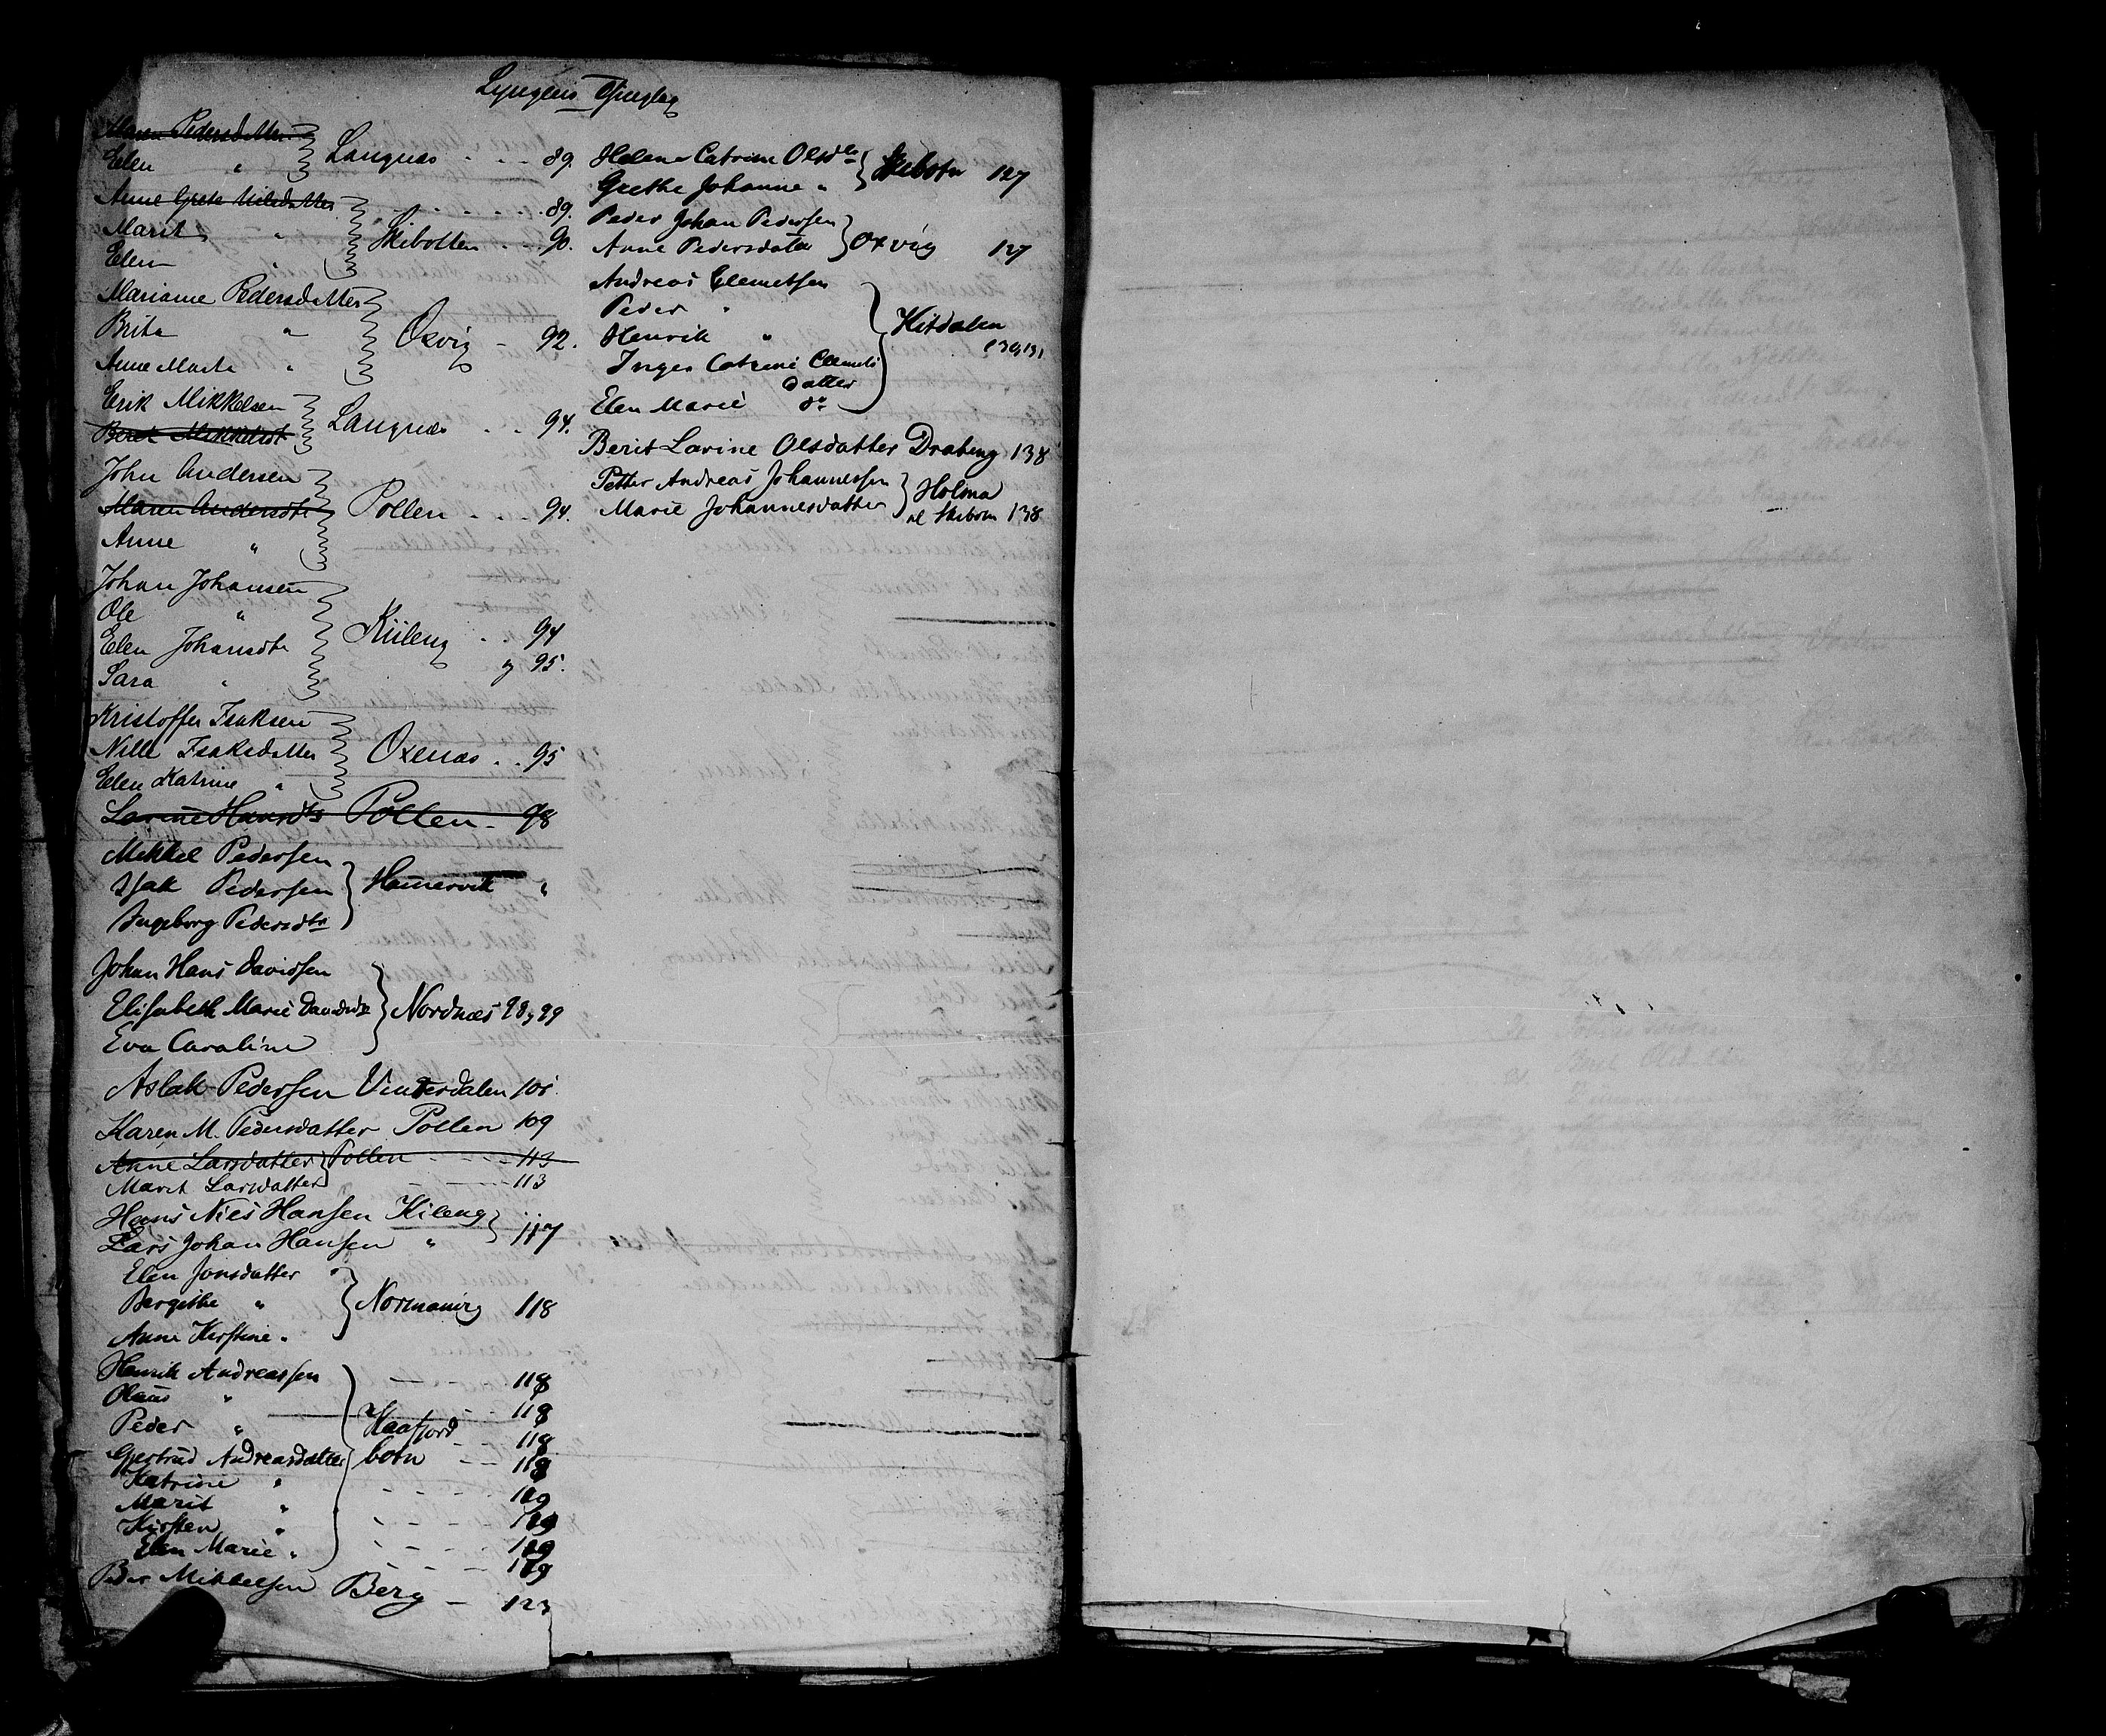 Lyngens Thinglag
Maren Pedersdatter
Elen " Langnæs - - - 89.
Anne Grete Nilsdatter - - - - - - 89.
Marit " Skibotten - - 90.
Elen "
Marianne Pedersdatter
Brita " Oxvig - 92.
Anne Marta "
Erik Mikkelsen
Langnæs - - 94.
Berit Mikkelsdt
John Andersen
Maren Andersdtr Pollen - - - 94.
Anne "
Johan Johansen
Ole "
Elen Johansdtr Kiileng - - 94
og 95.
Sara "
Kristoffer Isaksen
Nille Isaksdatter Oxenæs - - 95
Elen Katrine "
Lavine Hansdtr Pollen - 98
Mikkel Pedersen
Isak Pedersen Hamervik "
Ingeborg Pedersdtr
Johan Hans Davidsen
Elisabeth Marie Davidsdtr Nordnæs 98, 99
Eva Caroline
Aslak Pedersen Vinterdalen
Karen M. Pedersdatter Pollen 109
Anne Larsdatter Pollen - - - - 113
Marit Larsdatter - - - - 113
Hans Niels Hansen Kileng
117
Lars Johan Hansen "
Elen Jonsdatter "
Bergithe " 118
Anne Kirstine "
Henrik Andreassen - - - 118
Olaus " - - 118
Peder " Kaafjord - 118
Gjertrud Andreasdatter botn - - 118
Katrine " - - - - 119
Marit " - - - - 119
Kirsten " - - - - 119
Elen Marie " - - - - 119
Per Mikkelsen Berg - 123
Helene Catrine Olsdtr
Skibotn 127
Grethe Johanne "
Peder Johan Pedersen
Anne Pedersdatter Oxvig 127
Andreas Clemetsen
Peder "
Kitdalen
Henrik "
130, 131
Inger Catrine Clemets
datter
Elen Marie do
Berit Lavine Olsdatter 138
Petter Andreas Johannessen
Holma
Marie Johannesdatter
al Skibotn 138